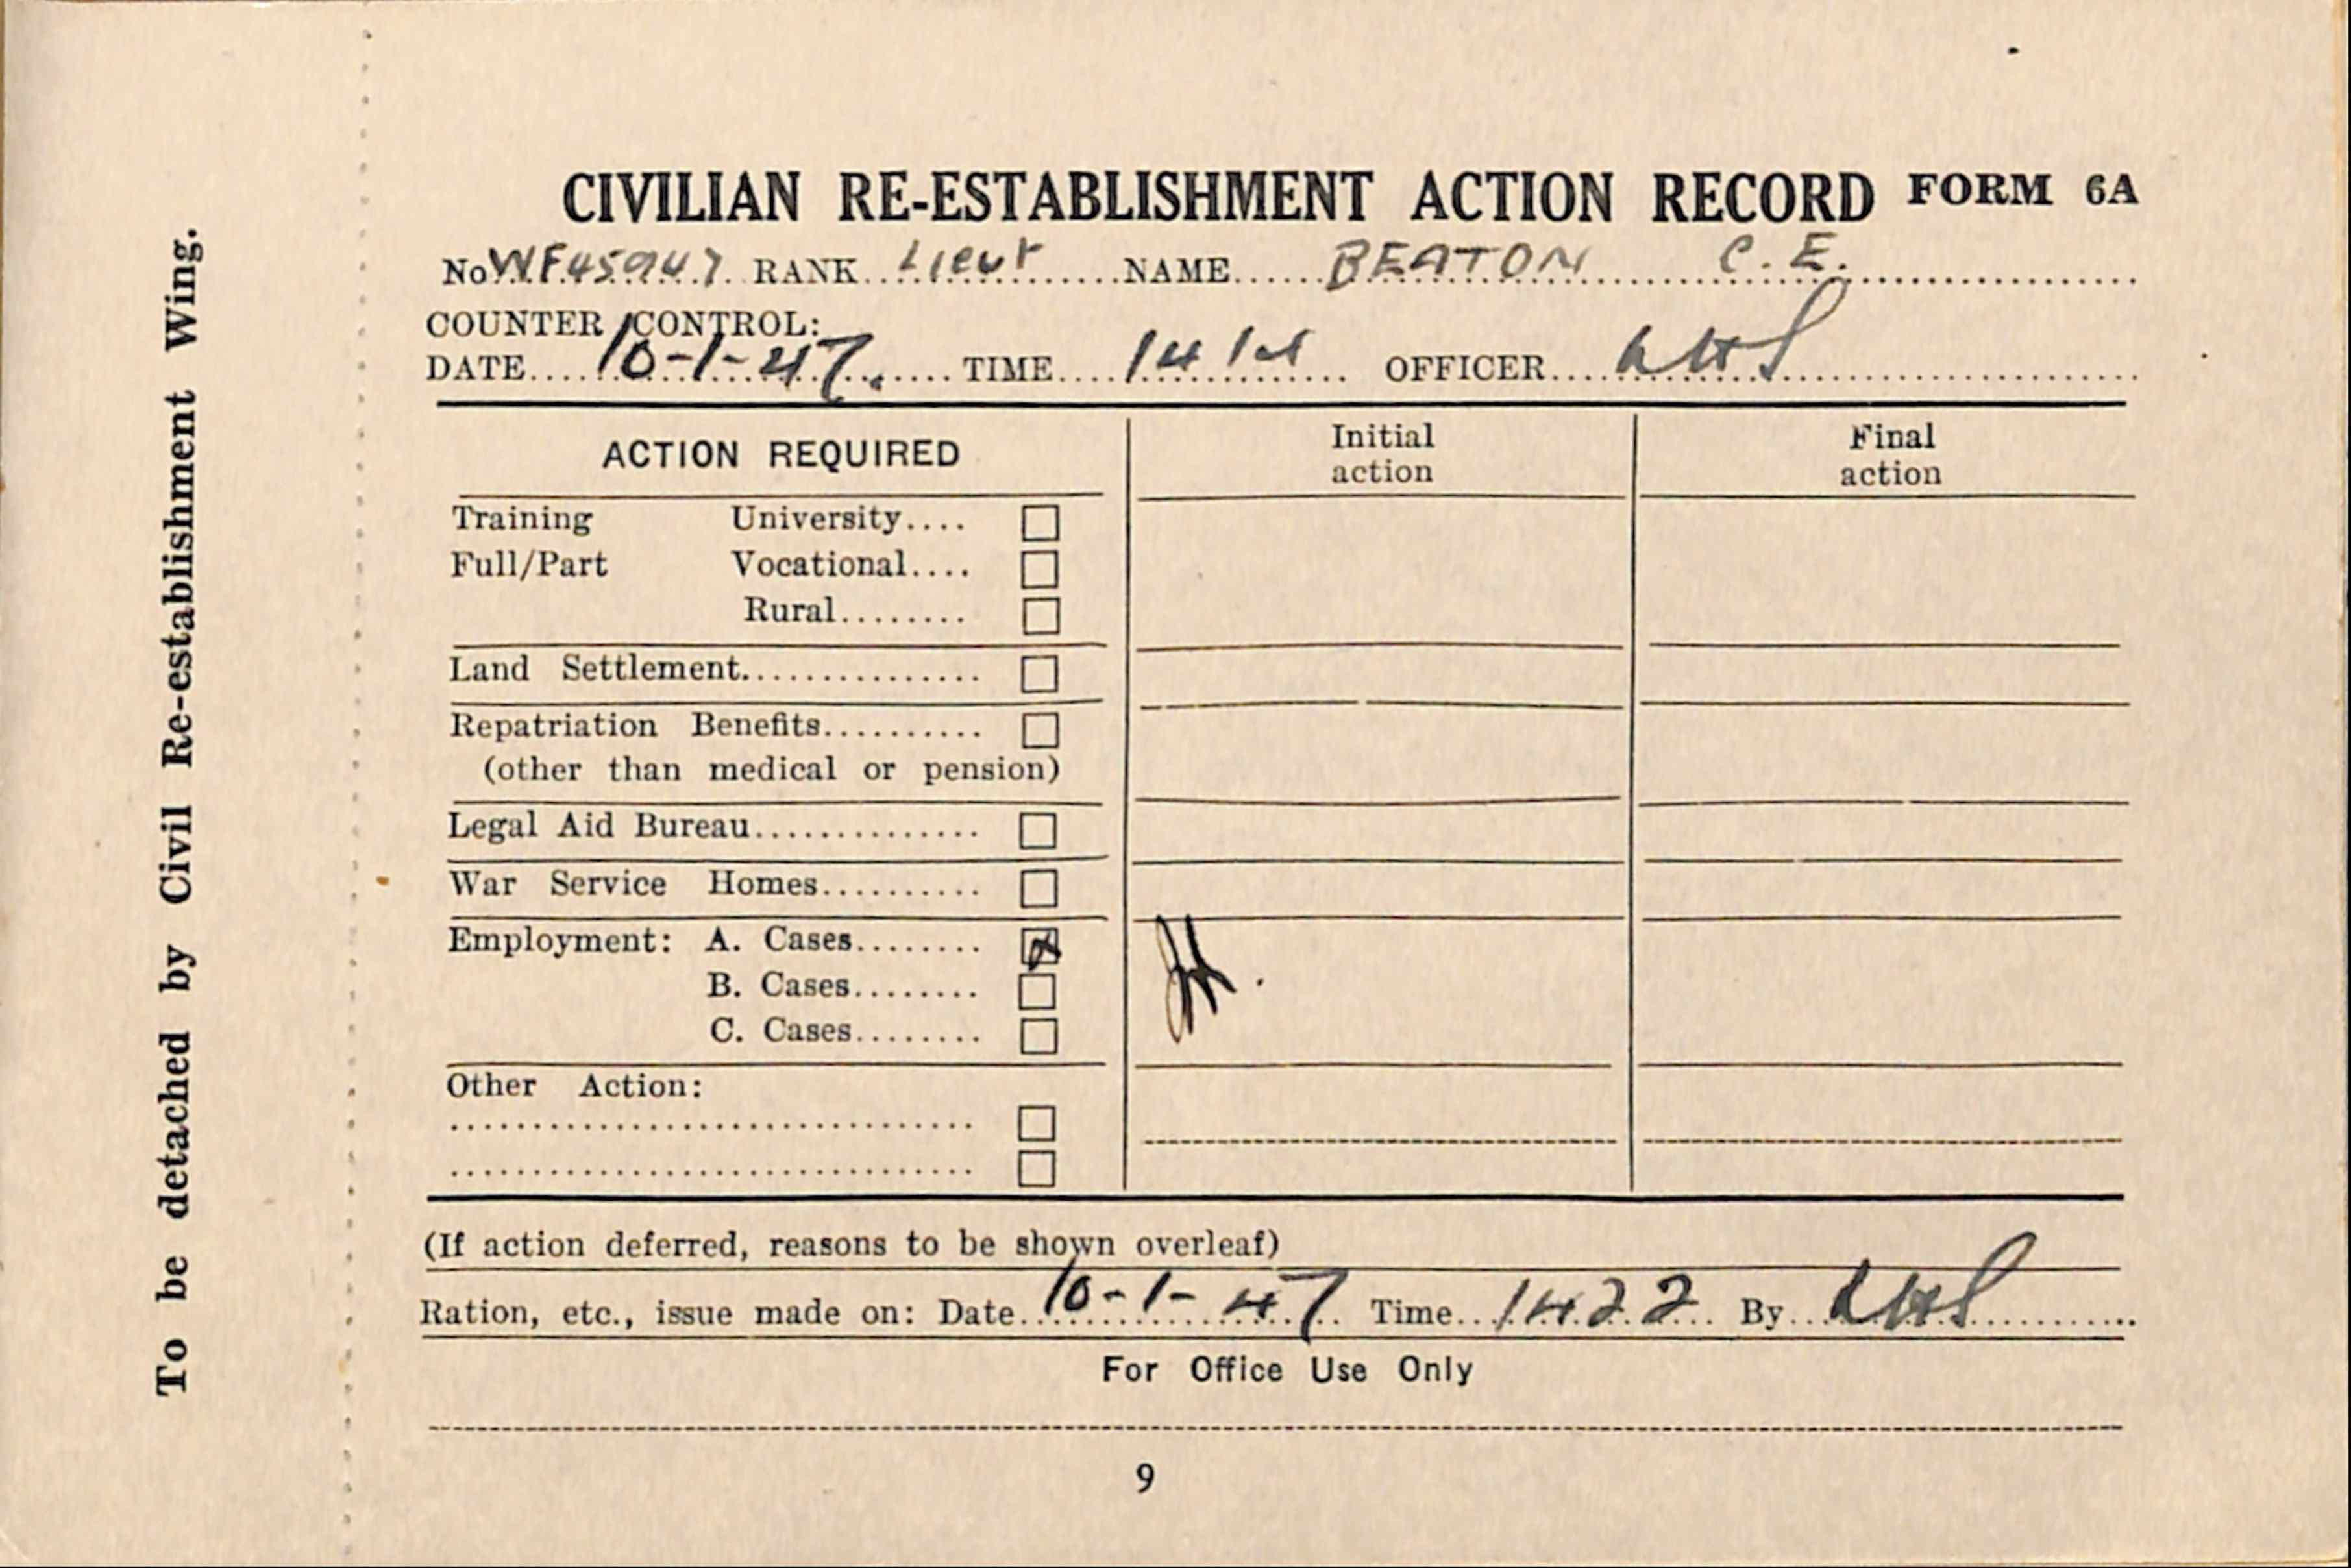 CIVILIAN RE-ESTABLISHMENT ACTION RECORD FORM 6A
No WF45947 RANK Lieut NAME BEATON C.E.
COUNTER CONTROL:
DATE 10-1-47. TIME OFFICER
ACTION REQUIRED Initial action Final action
Training University....
Full/Part Vocational....
Rural........
Land Settlement...............
Repatriation Benefits..........
(other than medical or pension)
Legal Aid Bureau..............
War Service Homes..........
Employment: A. Cases........
B. Cases........
C. Cases........
Other Action:
(If action deferred, reasons to be shown overleaf)
Ration, etc., issue made on: Date 10-1-47 Time 1422 By
For Office Use Only
9
To be detached by Civil Re-establishment Wing.